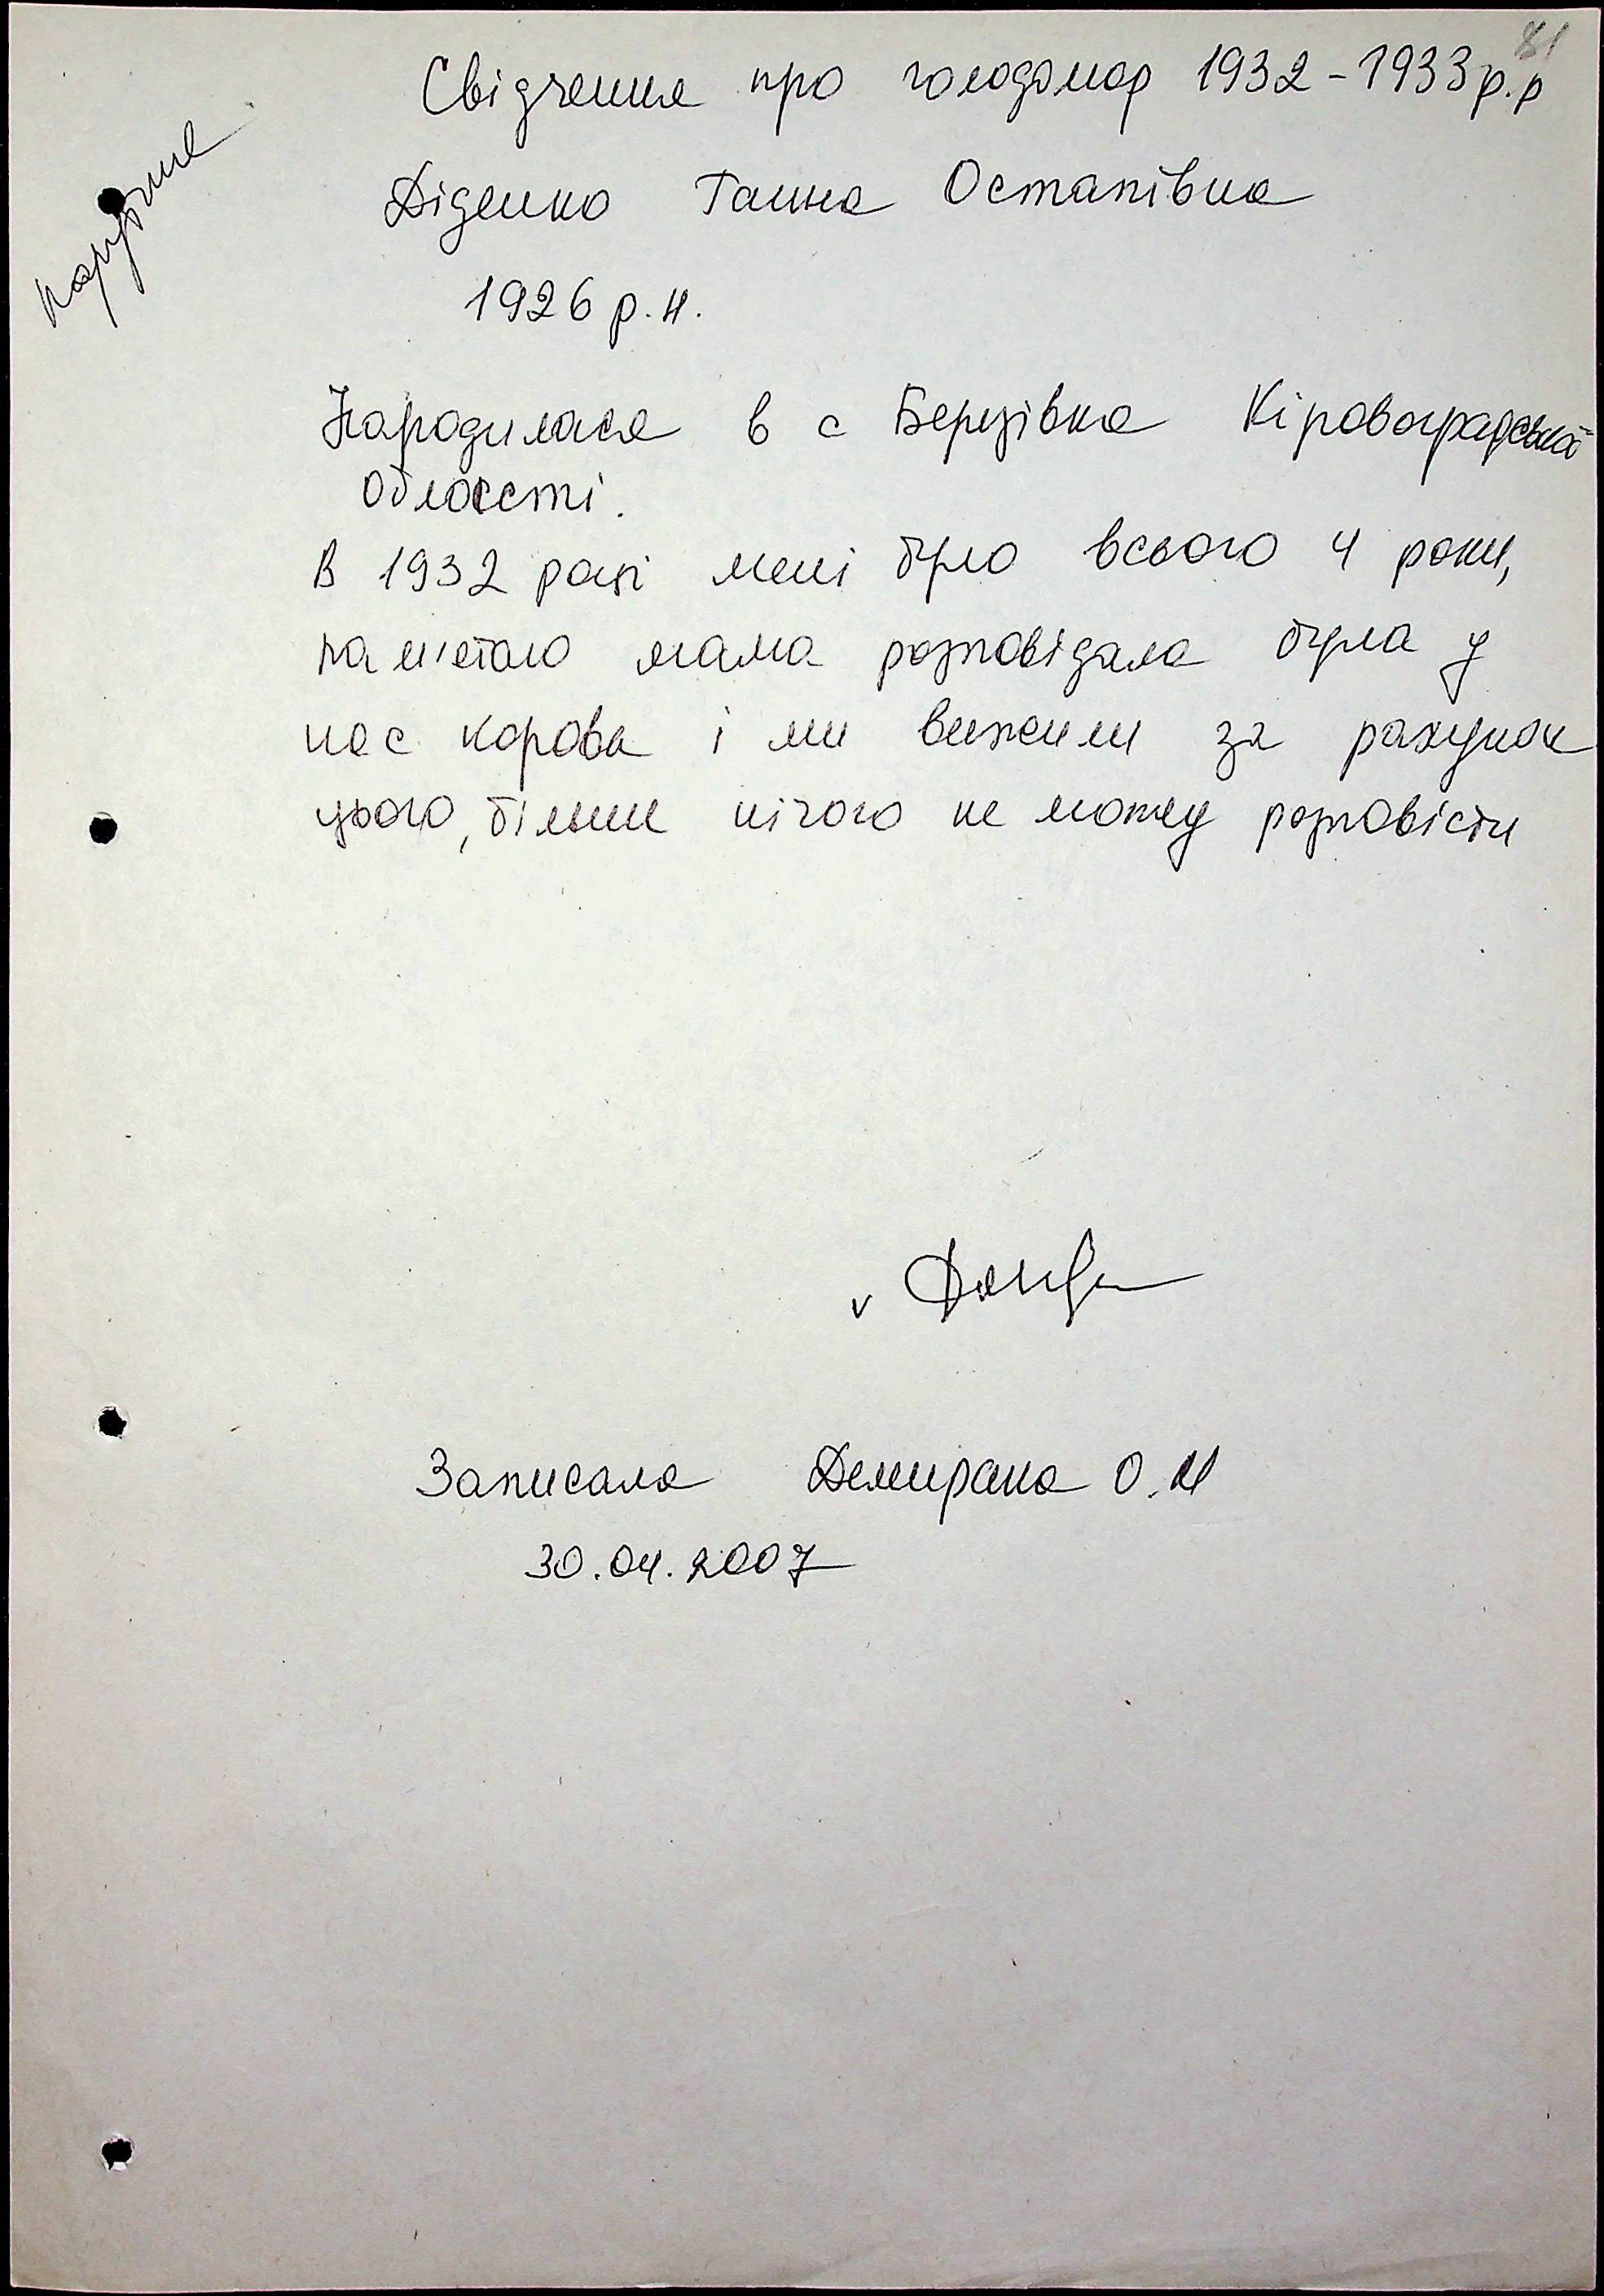 81
Свідчення про голодомор 1932-1933 р.р
Діденко Ганна Остапівна
1926 р.н.
Народилася в с Березівка Кіровоградської
області.
В 1932 році мені було всього 4 роки,
пам'ятаю мама розповідала була у
нас корова і ми вижили за рахунок
цього, більше нічого не можу розповісти
Записала О.М
30.04.2007